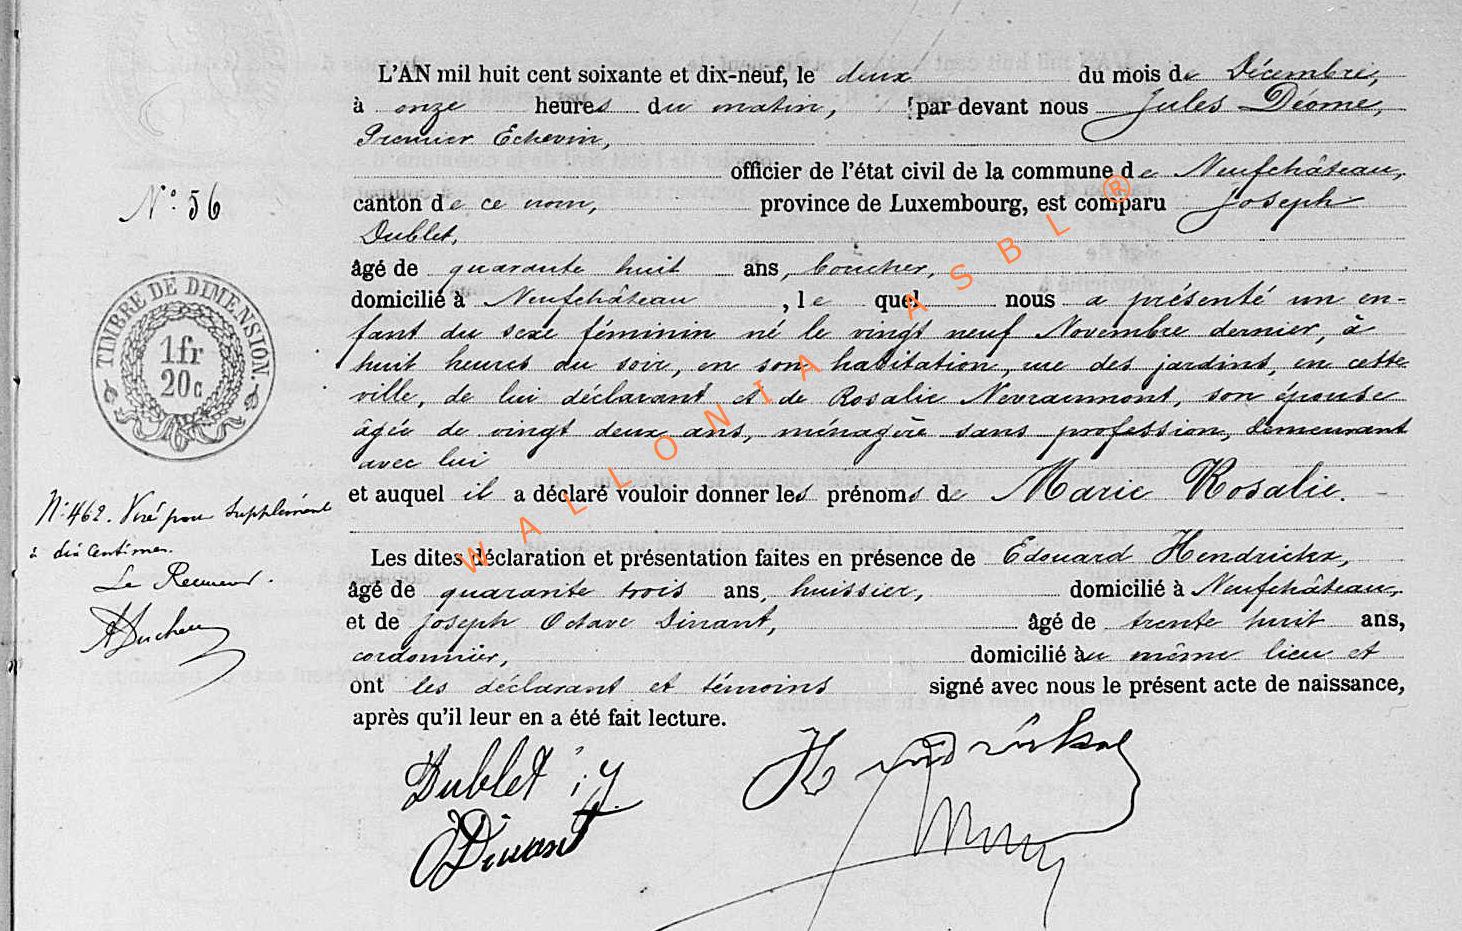 L'AN mil huit cent soixante et dix-neuf, le deux du mois de Décembre,
à onze heures du matin, par devant nous Jules Déome,
Premier Echevin,
officier de l'état civil de la commune de Neufchâteau,
canton de ce nom, province de Luxembourg, est comparu Joseph
Dublet,
âgé de quarante huit ans, boucher,
domicilié à Neufchâteau, lequel nous a présenté un en-
fant du sexe féminin né le vingt neuf Novembre dernier, à
huit heures du soir, en son habitation, rue des jardins, en cette
ville, de lui déclarant et de Rosalie Nevraumont, son épouse
âgée de vingt deux ans, ménagère sans profession, demeurant
avec lui
et auquel il a déclaré vouloir donner les prénoms de Marie Rosalie.
Les dites déclaration et présentation faites en présence de Edouard Hendrickx,
âgé de quarante trois ans, huissier, domicilié à Neufchâteau,
et de Joseph Octave Dinant, âgé de trente huit ans,
cordonnier, domicilié au même lieu et
ont les déclarant et témoins signé avec nous le présent acte de naissance,
après qu'il leur en a été fait lecture.
Dublet j
Hendrickx
O Dinant
N° 56
TIMBRE DE DIMENSION.
1fr
20c
N° 462. Visé pour supplément
à dix centimes.
Le Receveur.
WALLONIA ASBL ®